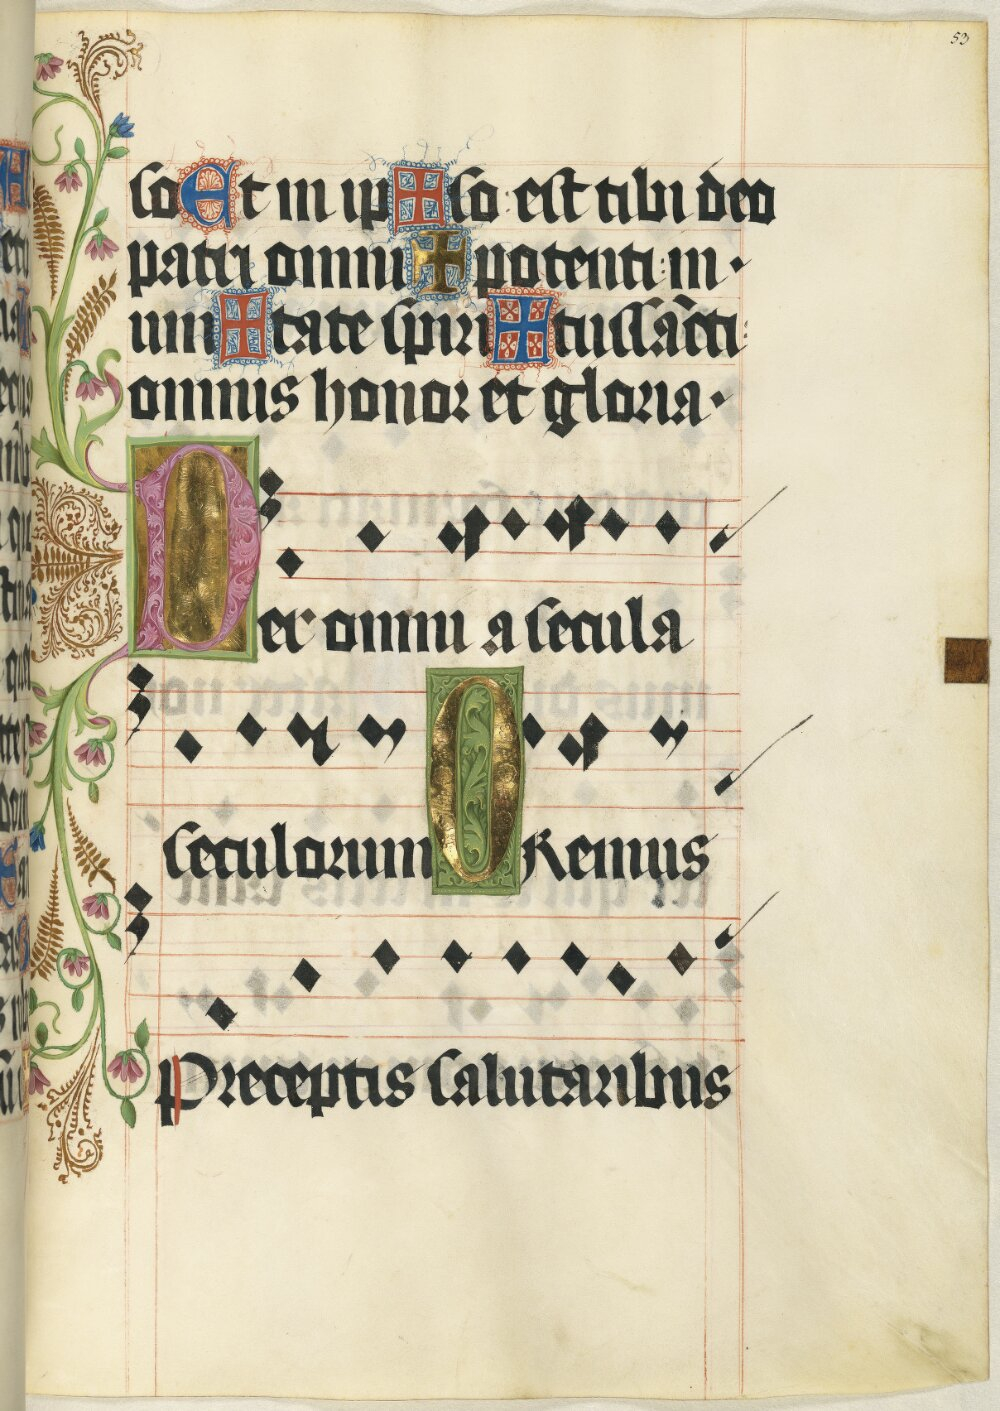 53
so Et in ip✠so: est tibi deo
patri omni✠potenti: in ·
uni✠tate spiri✠tussancti:
omnis honor et gloria·
Per omnia secula
seculorum ORemus
Preceptis salutaribus